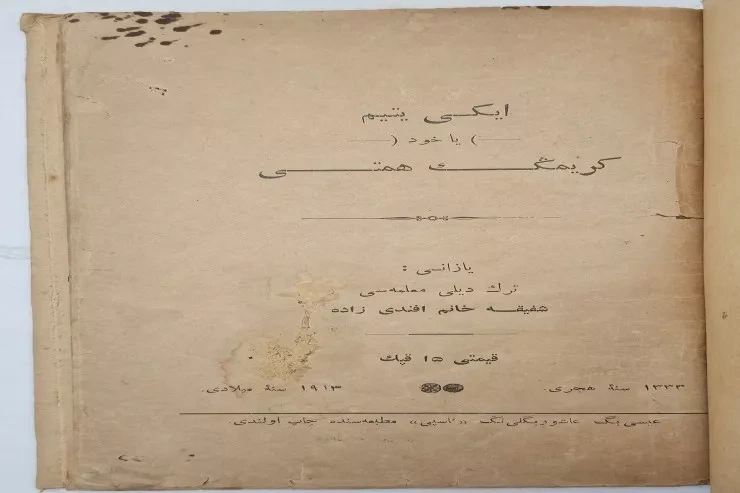 ایكی یتیم
( یا خود )
كریمڭ همتی
یازانی :
ترك دیلی معلمه‌سی
شفیقه خانم افندی زاده
قیمتی ۱۵ قپك
۱۳۳۳ سنهٔ هجری.
۱۹۱۳ سنهٔ میلادی.
عیسی بگ عاشوربگلی نڭ «كاسپی» مطبعه‌سنده چاپ اولندی.